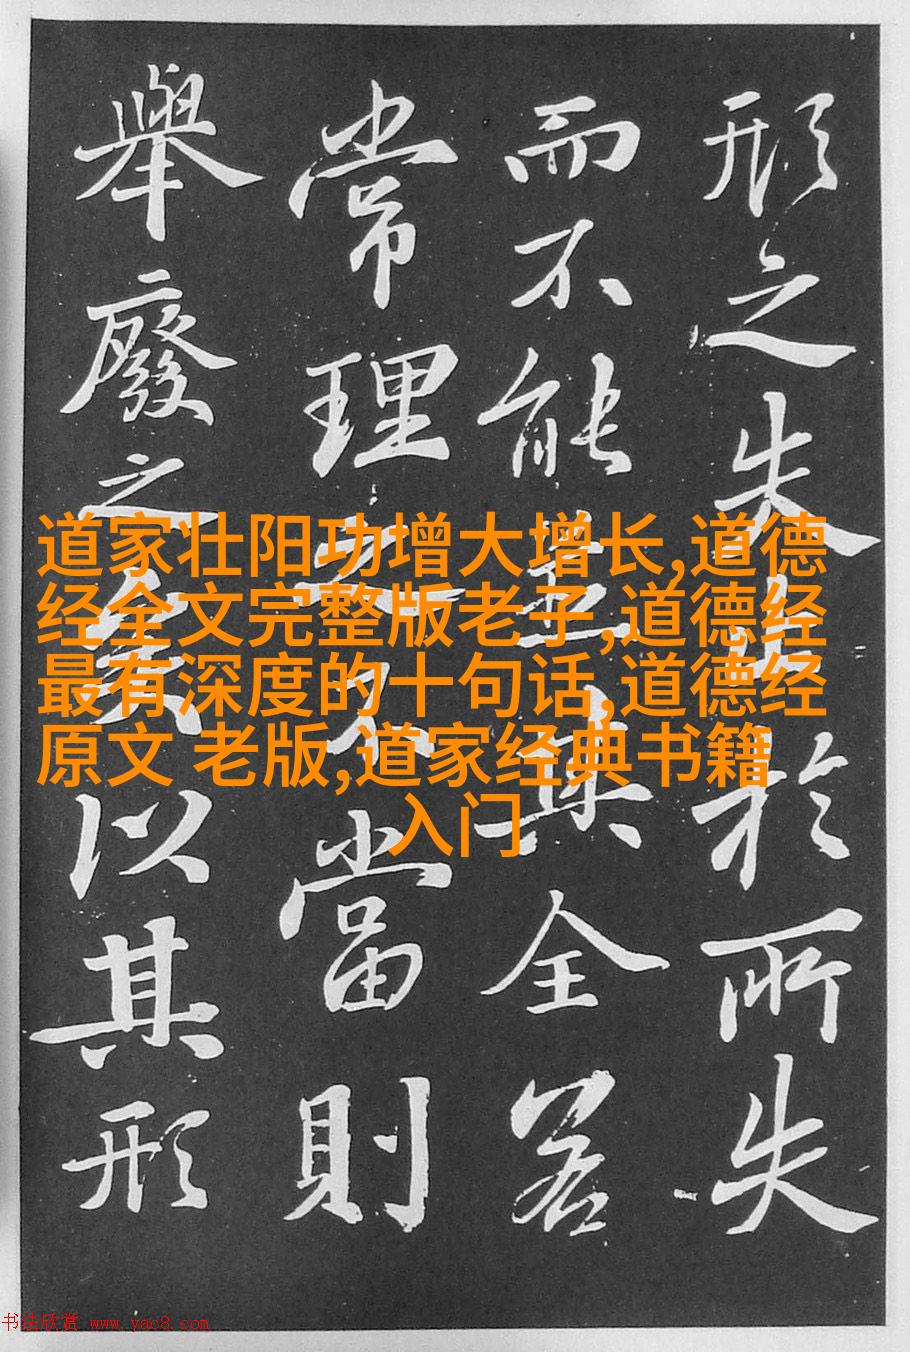 形之失止於所失
而不能其全若
常理之不當則
舉廢之矣以其形
道家壮阳功增大增长,道德
经全文完整版老子,道德经
最有深度的十句话,道德经
原文 老版,道家经典书籍
入门
书法欣赏 www.yac8.com